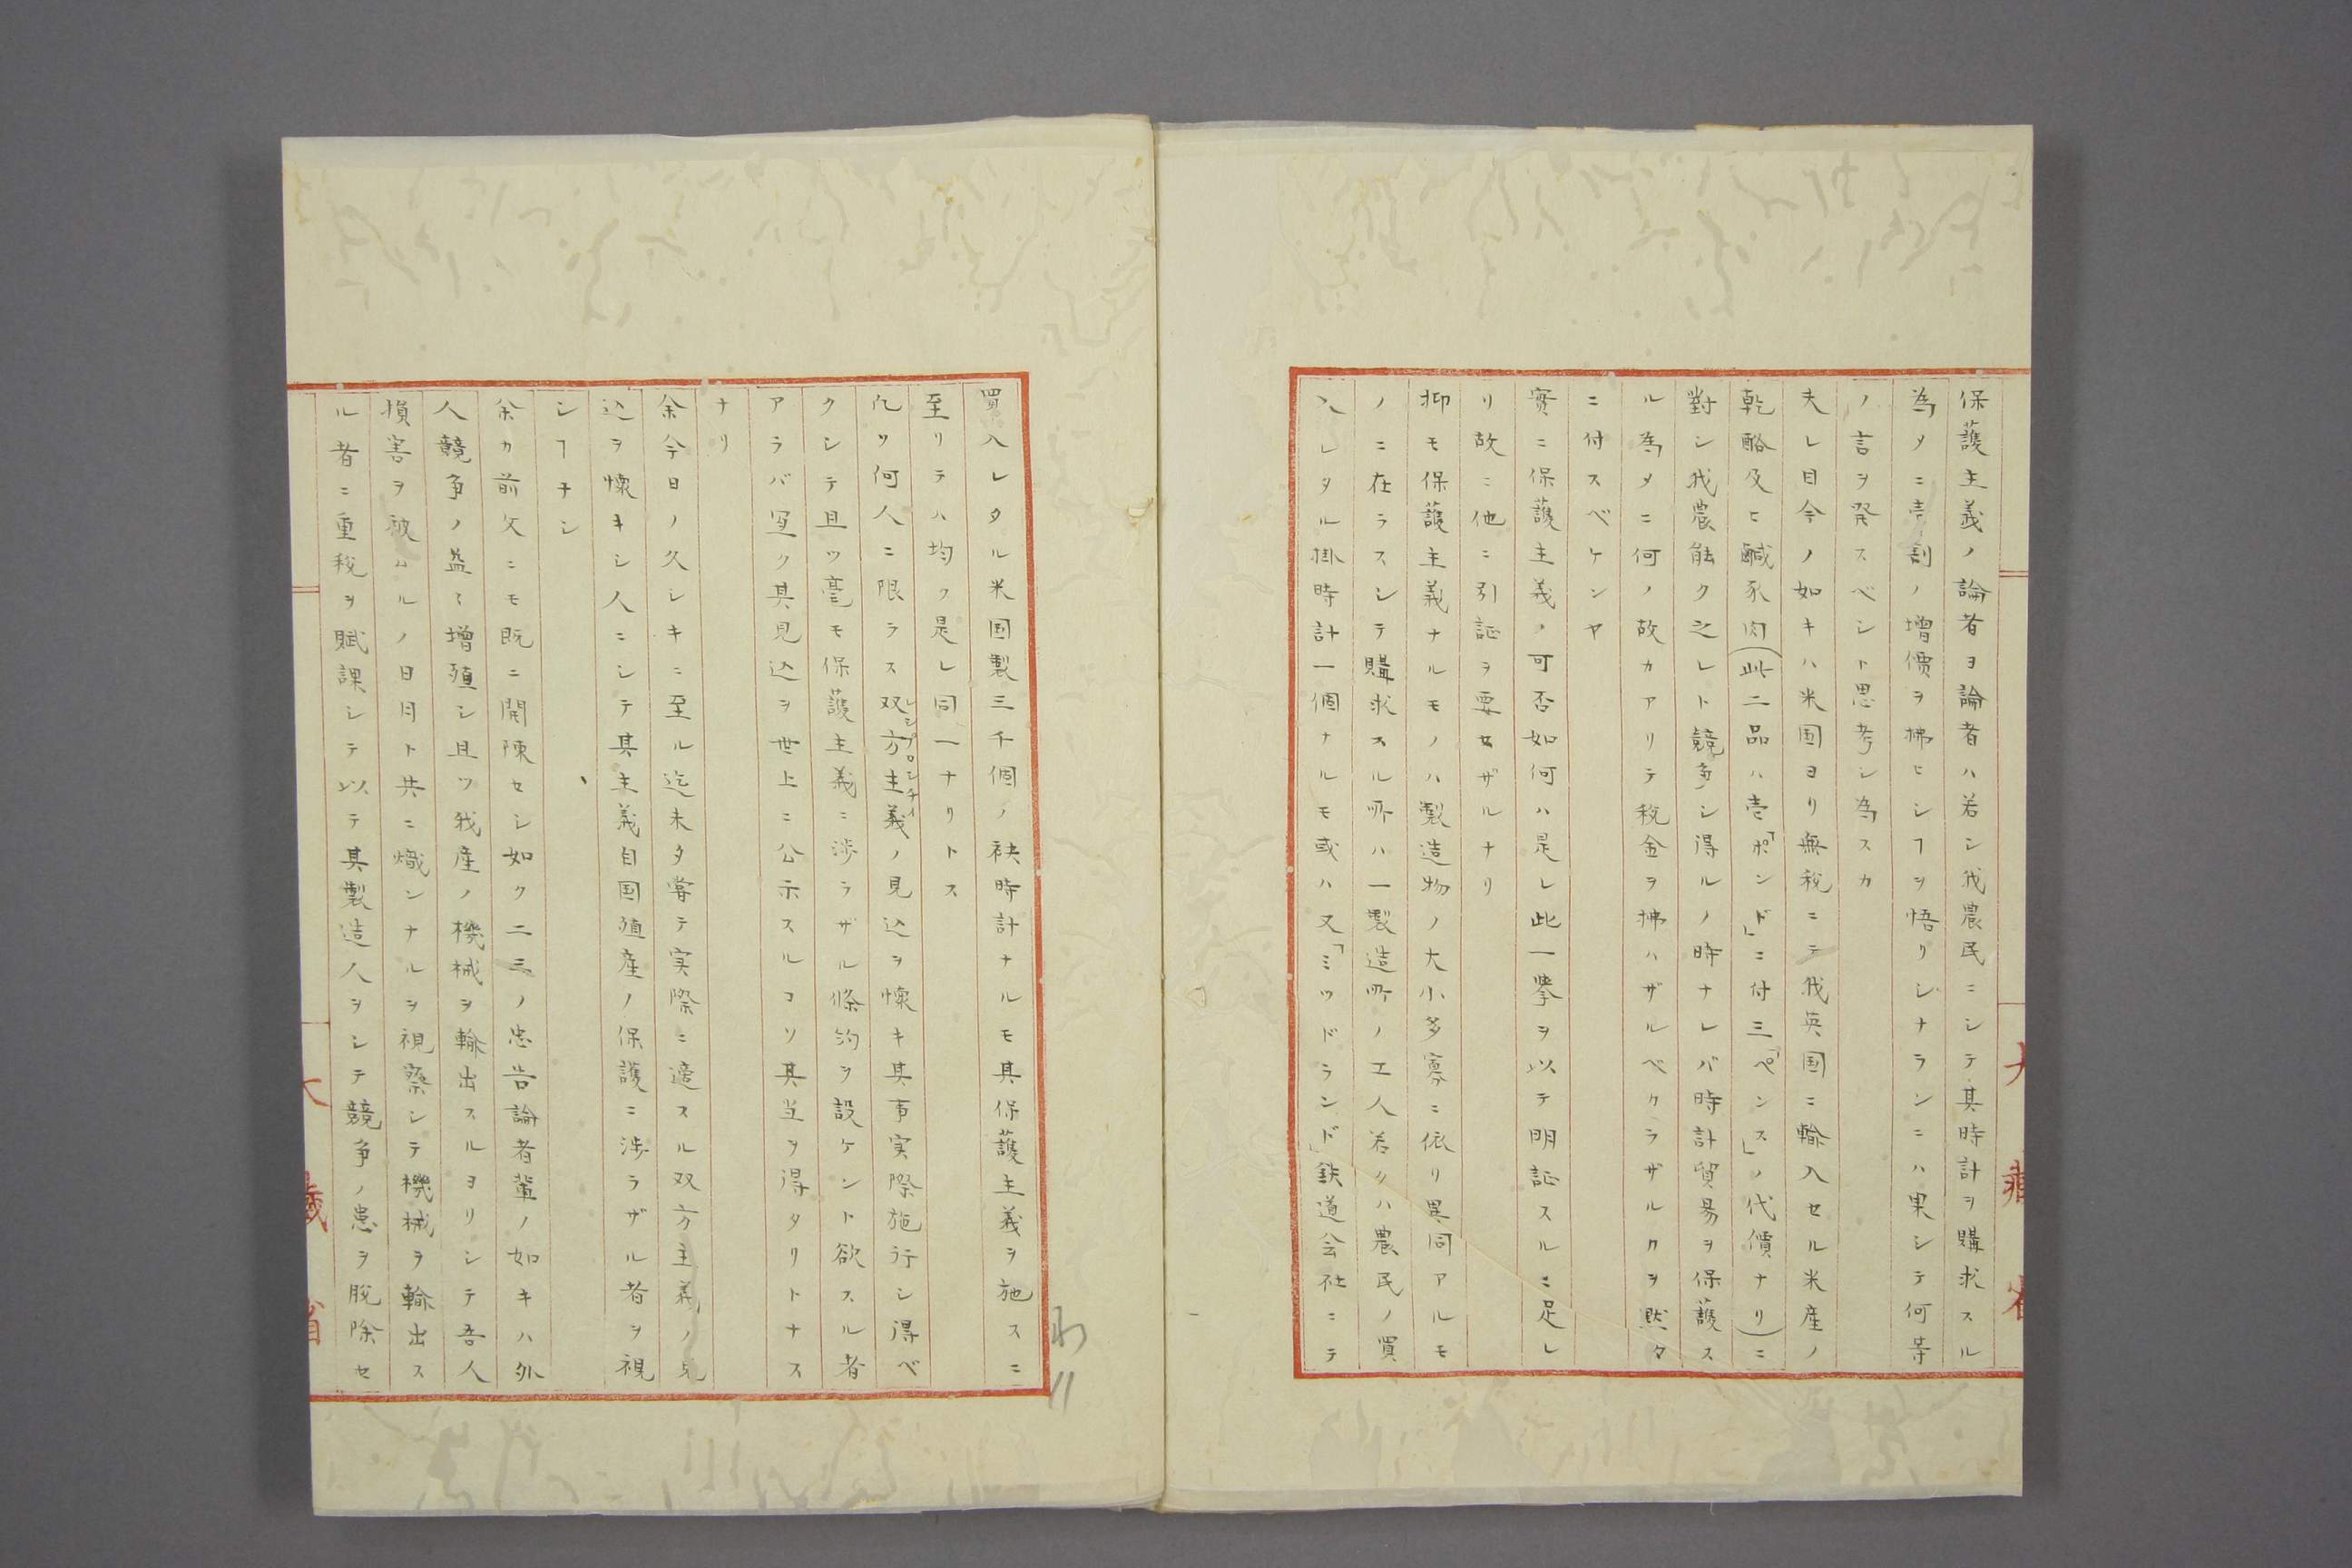 保護主義ノ論者ヨ論者ハ若シ我農民ニシテ其時計ヲ購求スル
為メニ壱割ノ増價ヲ拂ヒシヿヲ悟リシナランニハ果シテ何等
ノ言ヲ発スベシト思考シ為スカ
夫レ目今ノ如キハ米国ヨリ無税ニテ我英国ニ輸入セル米産ノ
乾酪及ヒ鹹豕肉(此二品ハ壱「ポンド」ニ付三「ペンス」ノ代價ナリ)ニ
對シ我農能ク之レト競争シ得ルノ時ナレバ時計貿易ヲ保護ス
ル為メニ何ノ故カアリテ税金ヲ拂ハザルベクラザルカヲ黙タ
ニ付スベケンヤ
實ニ保護主義ノ可否如何ハ是レ此一挙ヲ以テ明証スルニ足レ
リ故ニ他ニ引証ヲ要セザルナリ
抑モ保護主義ナルモノハ製造物ノ大小多寡ニ依リ異同アルモ
ノニ在ラスシテ購求スル所ハ一製造所ノ工人若クハ農民ノ買
入レタル掛時計一個ナルモ或ハ又「ミッドランド」鉄道会社ニテ
買入レタル米国製三千個ノ袂時計ナルモ其保護主義ヲ施スニ
至リテハ均ク是レ同一ナリトス
凢ソ何人ニ限ラス双方主義ノ見込ヲ懐キ其事実際施行シ得ベ
クシテ且ツ毫モ保護主義ニ渉ラザル條約ヲ設ケント欲スル者
アラバ冝ク其見込ヲ世上ニ公示スルコソ其当ヲ得タリトナス
ナリ
余今日ノ久シキニ至ル迄未タ嘗テ実際ニ適スル双方主義ノ見
込ヲ懐キシ人ニシテ其主義自国殖産ノ保護ニ渉ラザル者ヲ視
シヿナシ
余カ前文ニモ既ニ開陳セシ如ク二三ノ忠告論者輩ノ如キハ外
人競争ノ益々増殖シ且ツ我産ノ機械ヲ輸出スルヨリシテ吾人
損害ヲ被ムルノ日月ト共ニ熾ンナルヲ視察シテ機械ヲ輸出ス
ル者ニ重税ヲ賦課シテ以テ其製造人ヲシテ競争ノ患ヲ脱除セ
大藏省